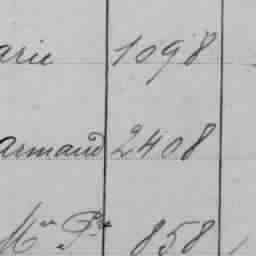 arie 1098
armand 2408
Mr P 858